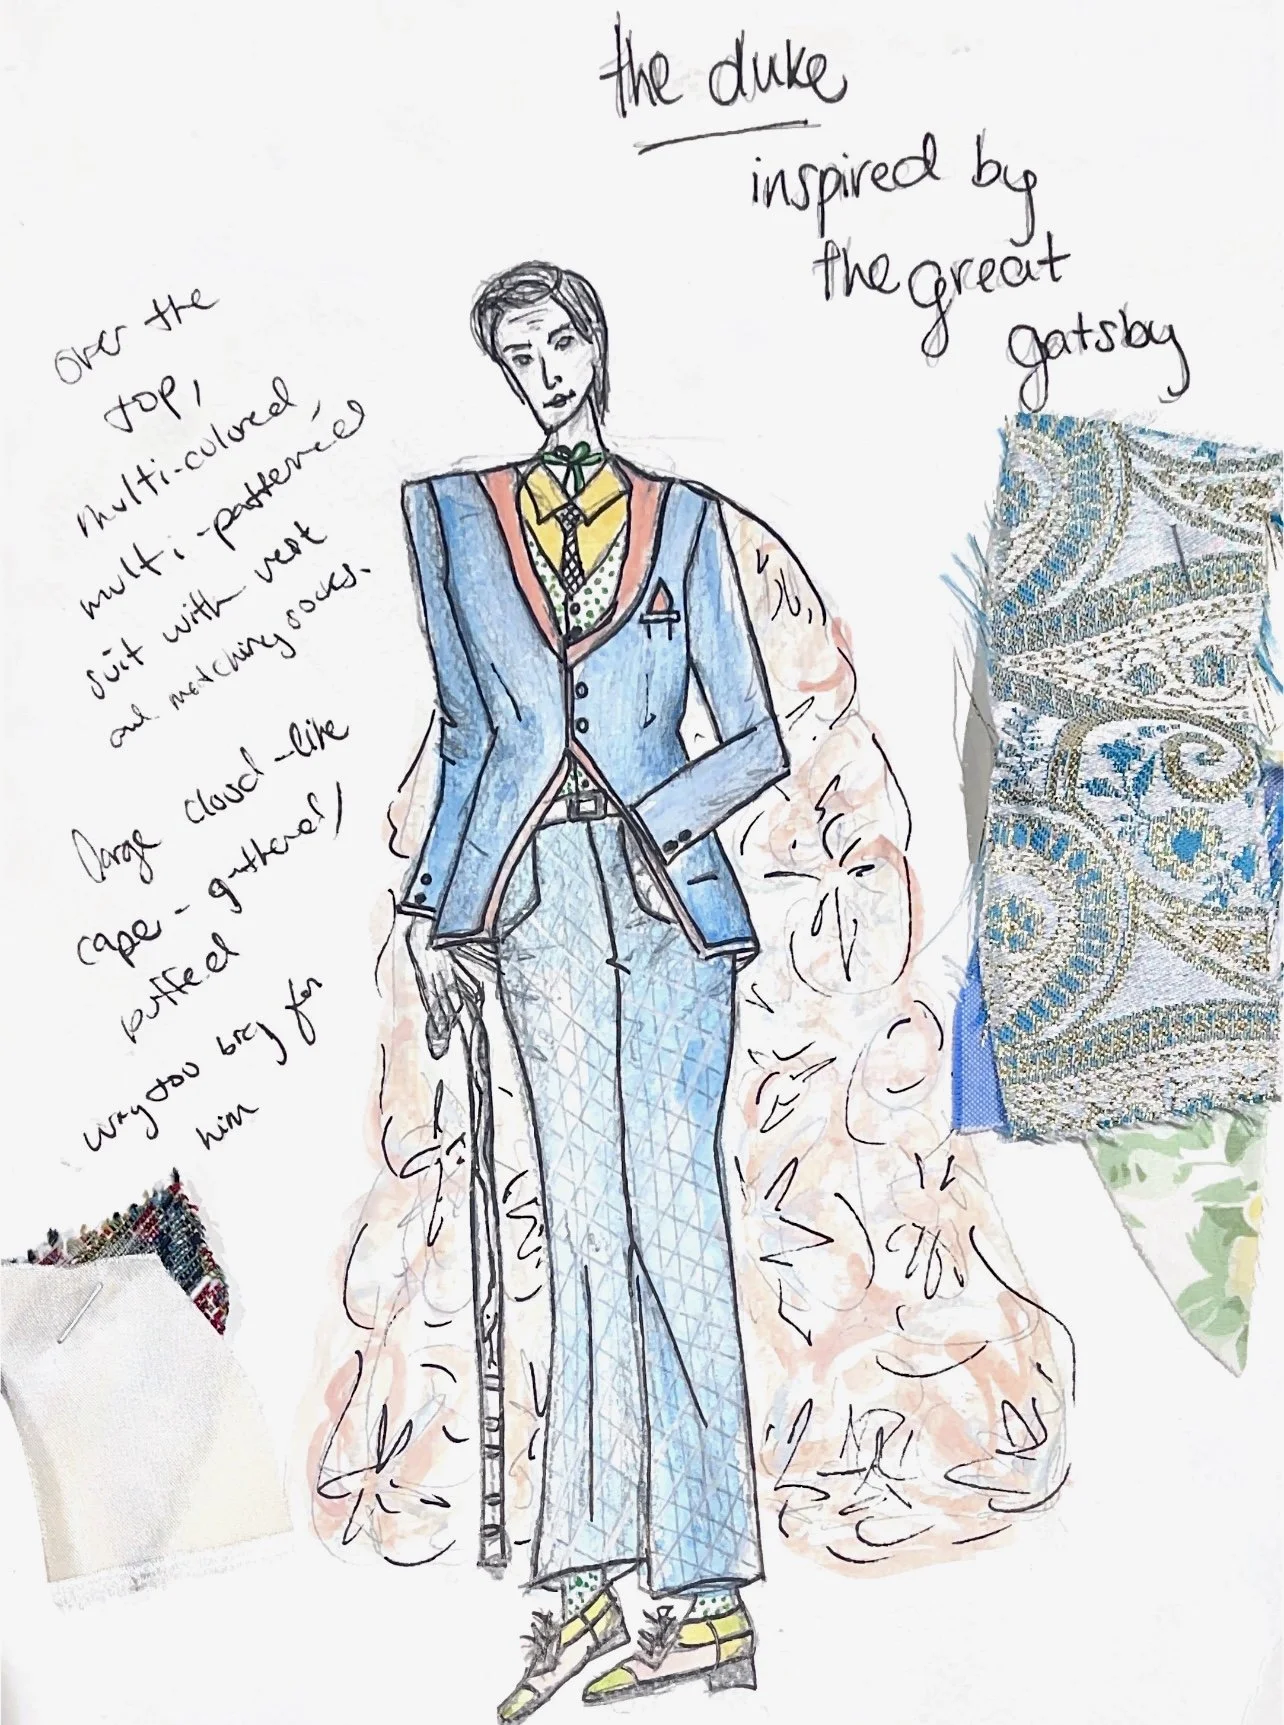 the duke
inspired by
the great
gatsby
over the
top,
multi-colored,
multi-patterned
suit with vest
and matching socks.
large cloud-like
cape - gathered/
puffed
way too big for
him